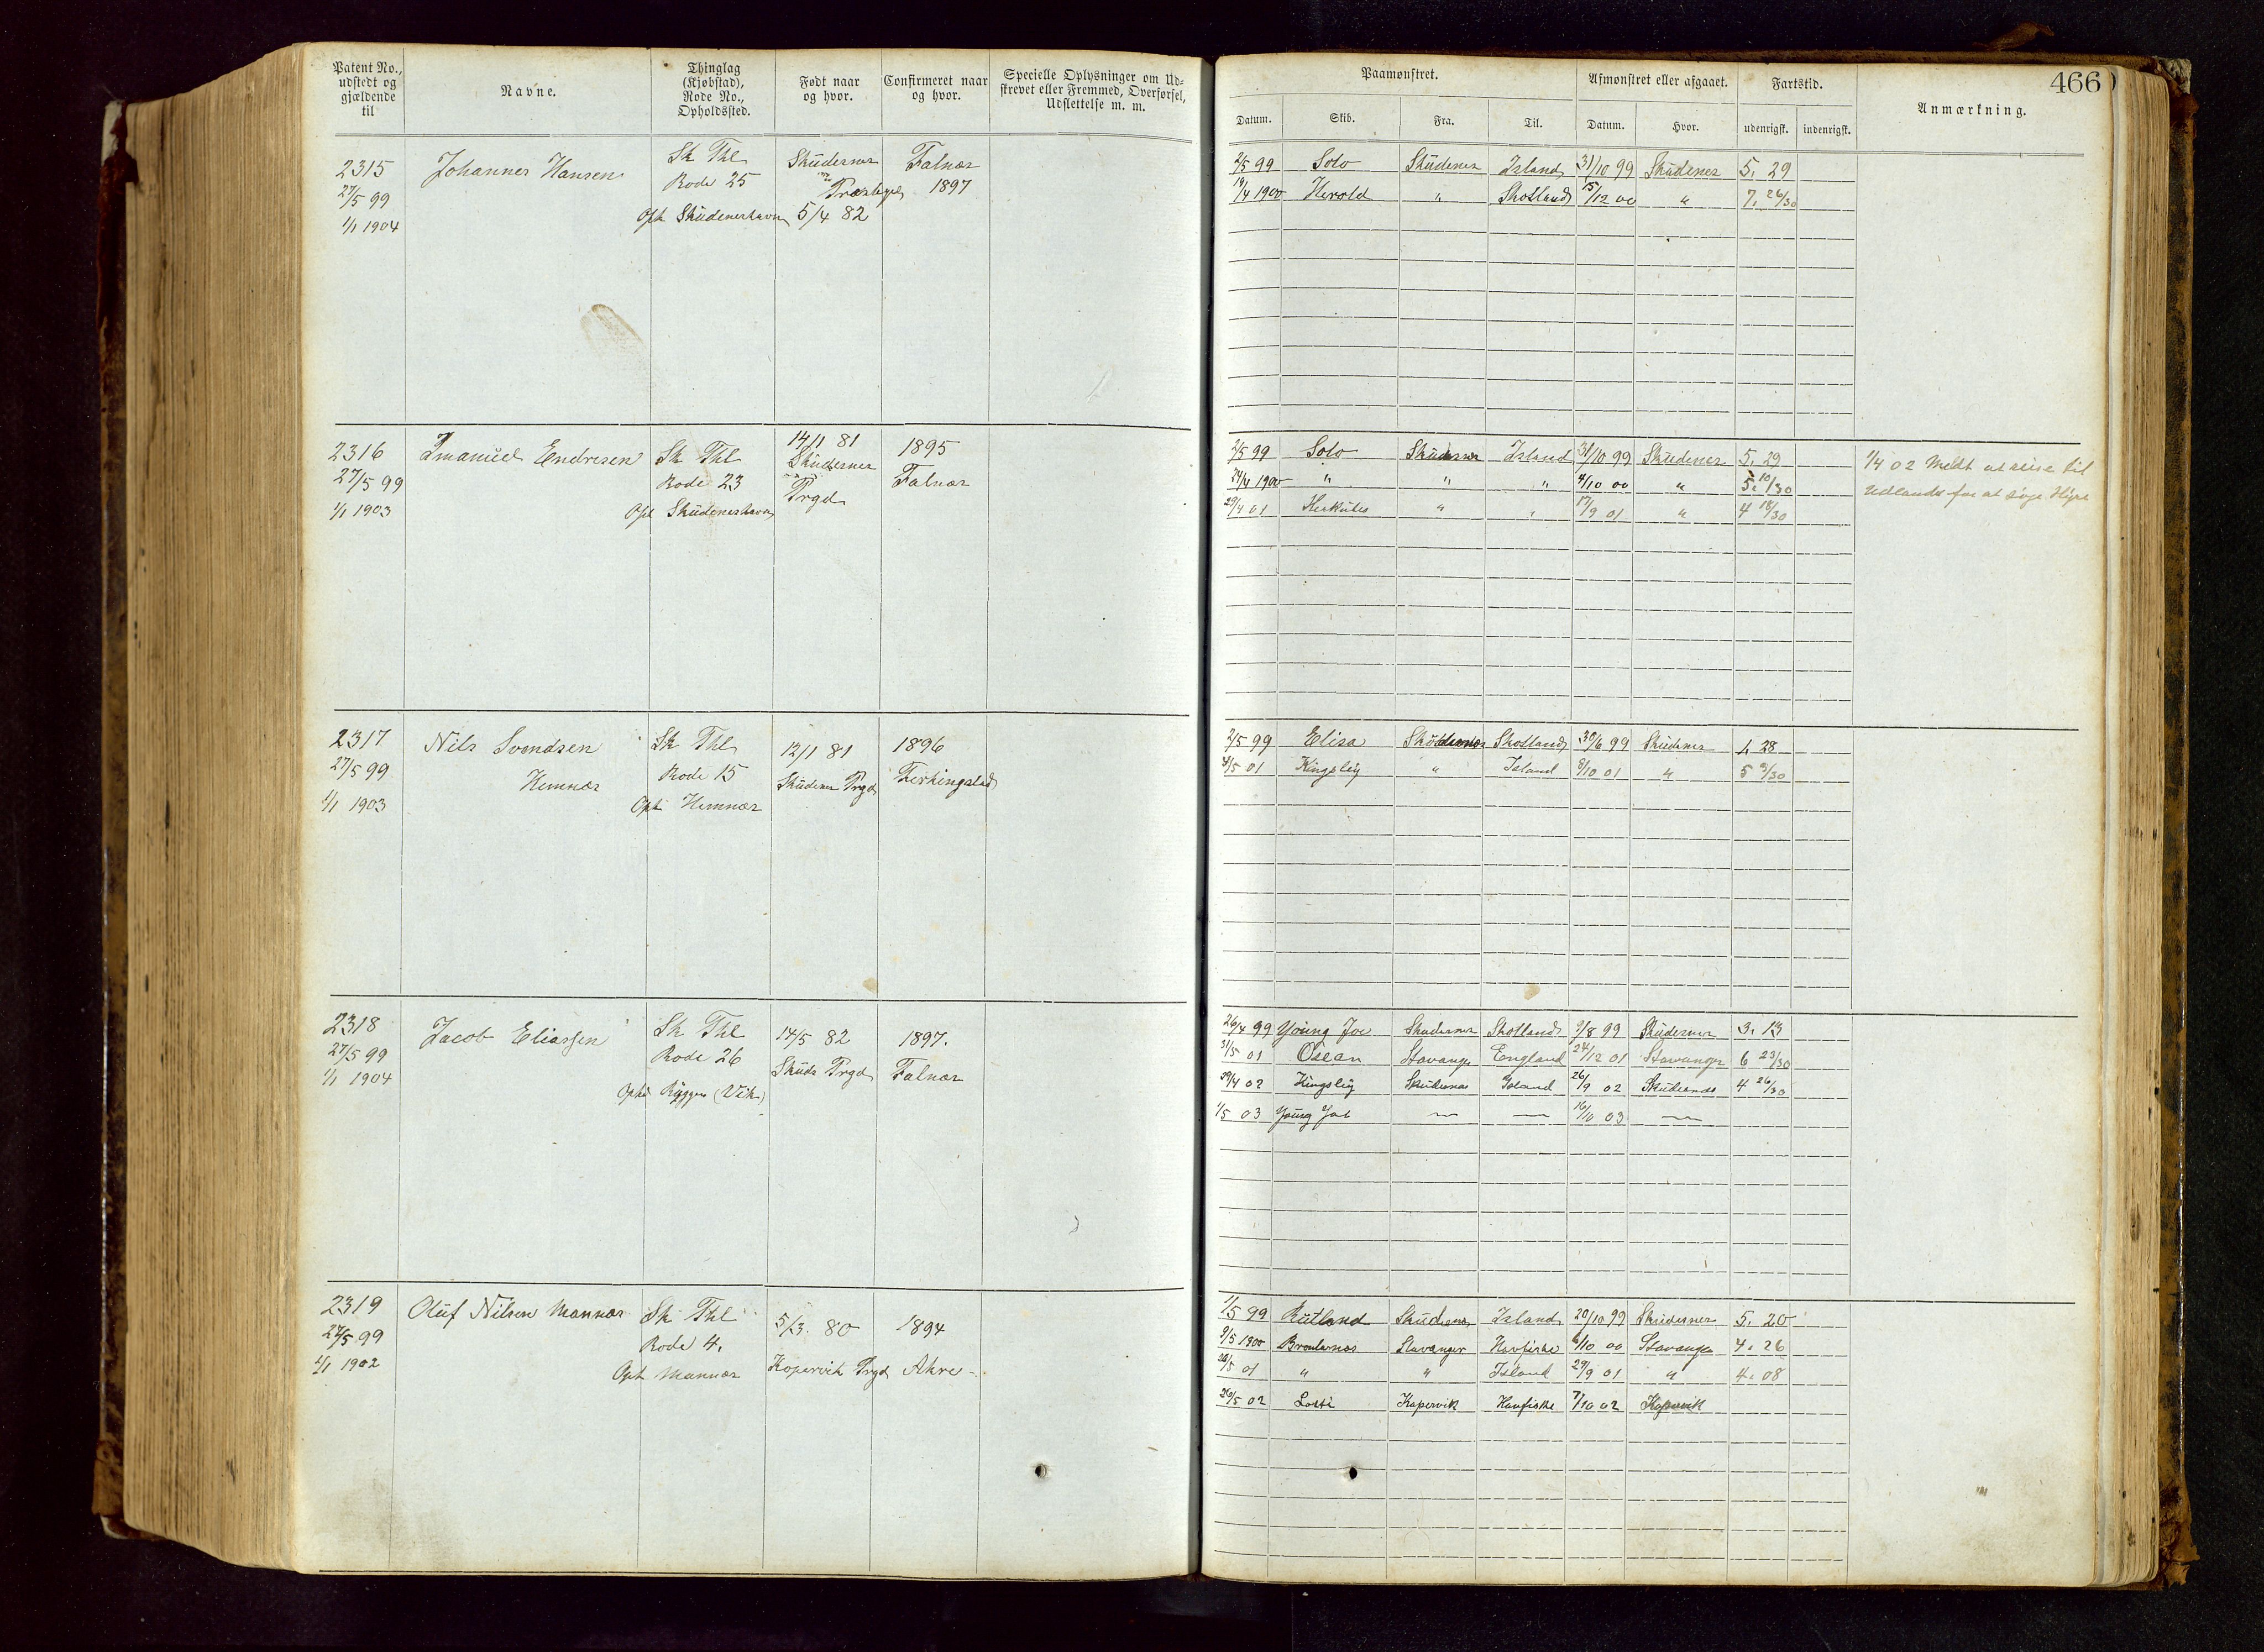 Patent No., udstedt og gjældende til
Navne.
Thinglag (Kjøbstad), Rode No., Opholdssted.
Født naar og hvor.
Confirmeret naar og hvor.
Specielle Oplysninger om Udskrevet eller Fremmed, Overførsel, Udslettelse m. m.
Paamønstret.
Afmønstret eller afgaaet.
Fartstid.
466
Datum. Skib. Fra. Til. Datum. Hvor. udenrigsk. indenrigsk. Anmærkning.
2315 Johannes Hansen Sk Thl Skudesnes Falnæs
27/5 99 Rode 25 Præstegjeld 1897
1/1 1904 Oph Skudeneshavn 5/4 82
2/5 99 Solo Skudenes Island 31/10 99 Skudenes 5. 29
/4 1900 Herold " Skotland 15/12 00 " 7. 26/30
2316 Imanuel Endresen Sk Thl 14/1 81 1895
27/5 99 Rode 23 Skudesnes Falnæs
1/1 1903 Oph Skudeneshavn Prgd
2/5 99 Solo Skudesnes Island 31/10 99 Skudenes 5. 29
24/4 1900 " " " 4/10 00 " 5. 10/30
29/4 01 Herkules " " 17/9 01 " 4 18/30
1/4 02 Meldt at reise til
Udlandet for at søge Hyre
2317 Nils Svendsen Sk Thl 12/1 81 1896
27/5 99 Hemnæs Rode 15 Skudenes Prgd Ferkingstad
1/1 1903 Oph Hemnæs
2/5 99 Elisa Skudesnes Skotland 30/6 99 Skudenes 1. 28
/5 01 Kingsley " Island 8/10 01 " 5 /30
2318 Jacob Eliassen Sk Thl 14/5 82 1897.
27/5 99 Rode 26 Skuds Prgd Falnæs
1/1 1904 Oph (Vik)
26/4 99 Young Joe Skudesnes Skotland 9/8 99 Skudesnes 3. 13
31/5 01 Osean Stavanger England 24/12 01 Stavanger 6 23/30
29/4 02 Kingsley Skudesnes Island 26/9 02 Skudesnes 4 26/30
1/5 03 Young Joe — — 16/10 03 —
2319 Oluf Nilsen Mannæs Sk Thl 5/3. 80 1894
27/5 99 Rode 4. Kopervik Prgd Akre
1/1 1902 Oph Mannæs
1/5 99 Rutland Skudesnes Island 20/10 99 Skudesnes 5. 20
9/5 1900 Stavanger Havfiske 6/10 00 Stavanger 4. 26
/5 01 " " Island 29/9 01 " 4. 08
26/5 02 Kopervik Havfiske 7/10 02 Kopervik